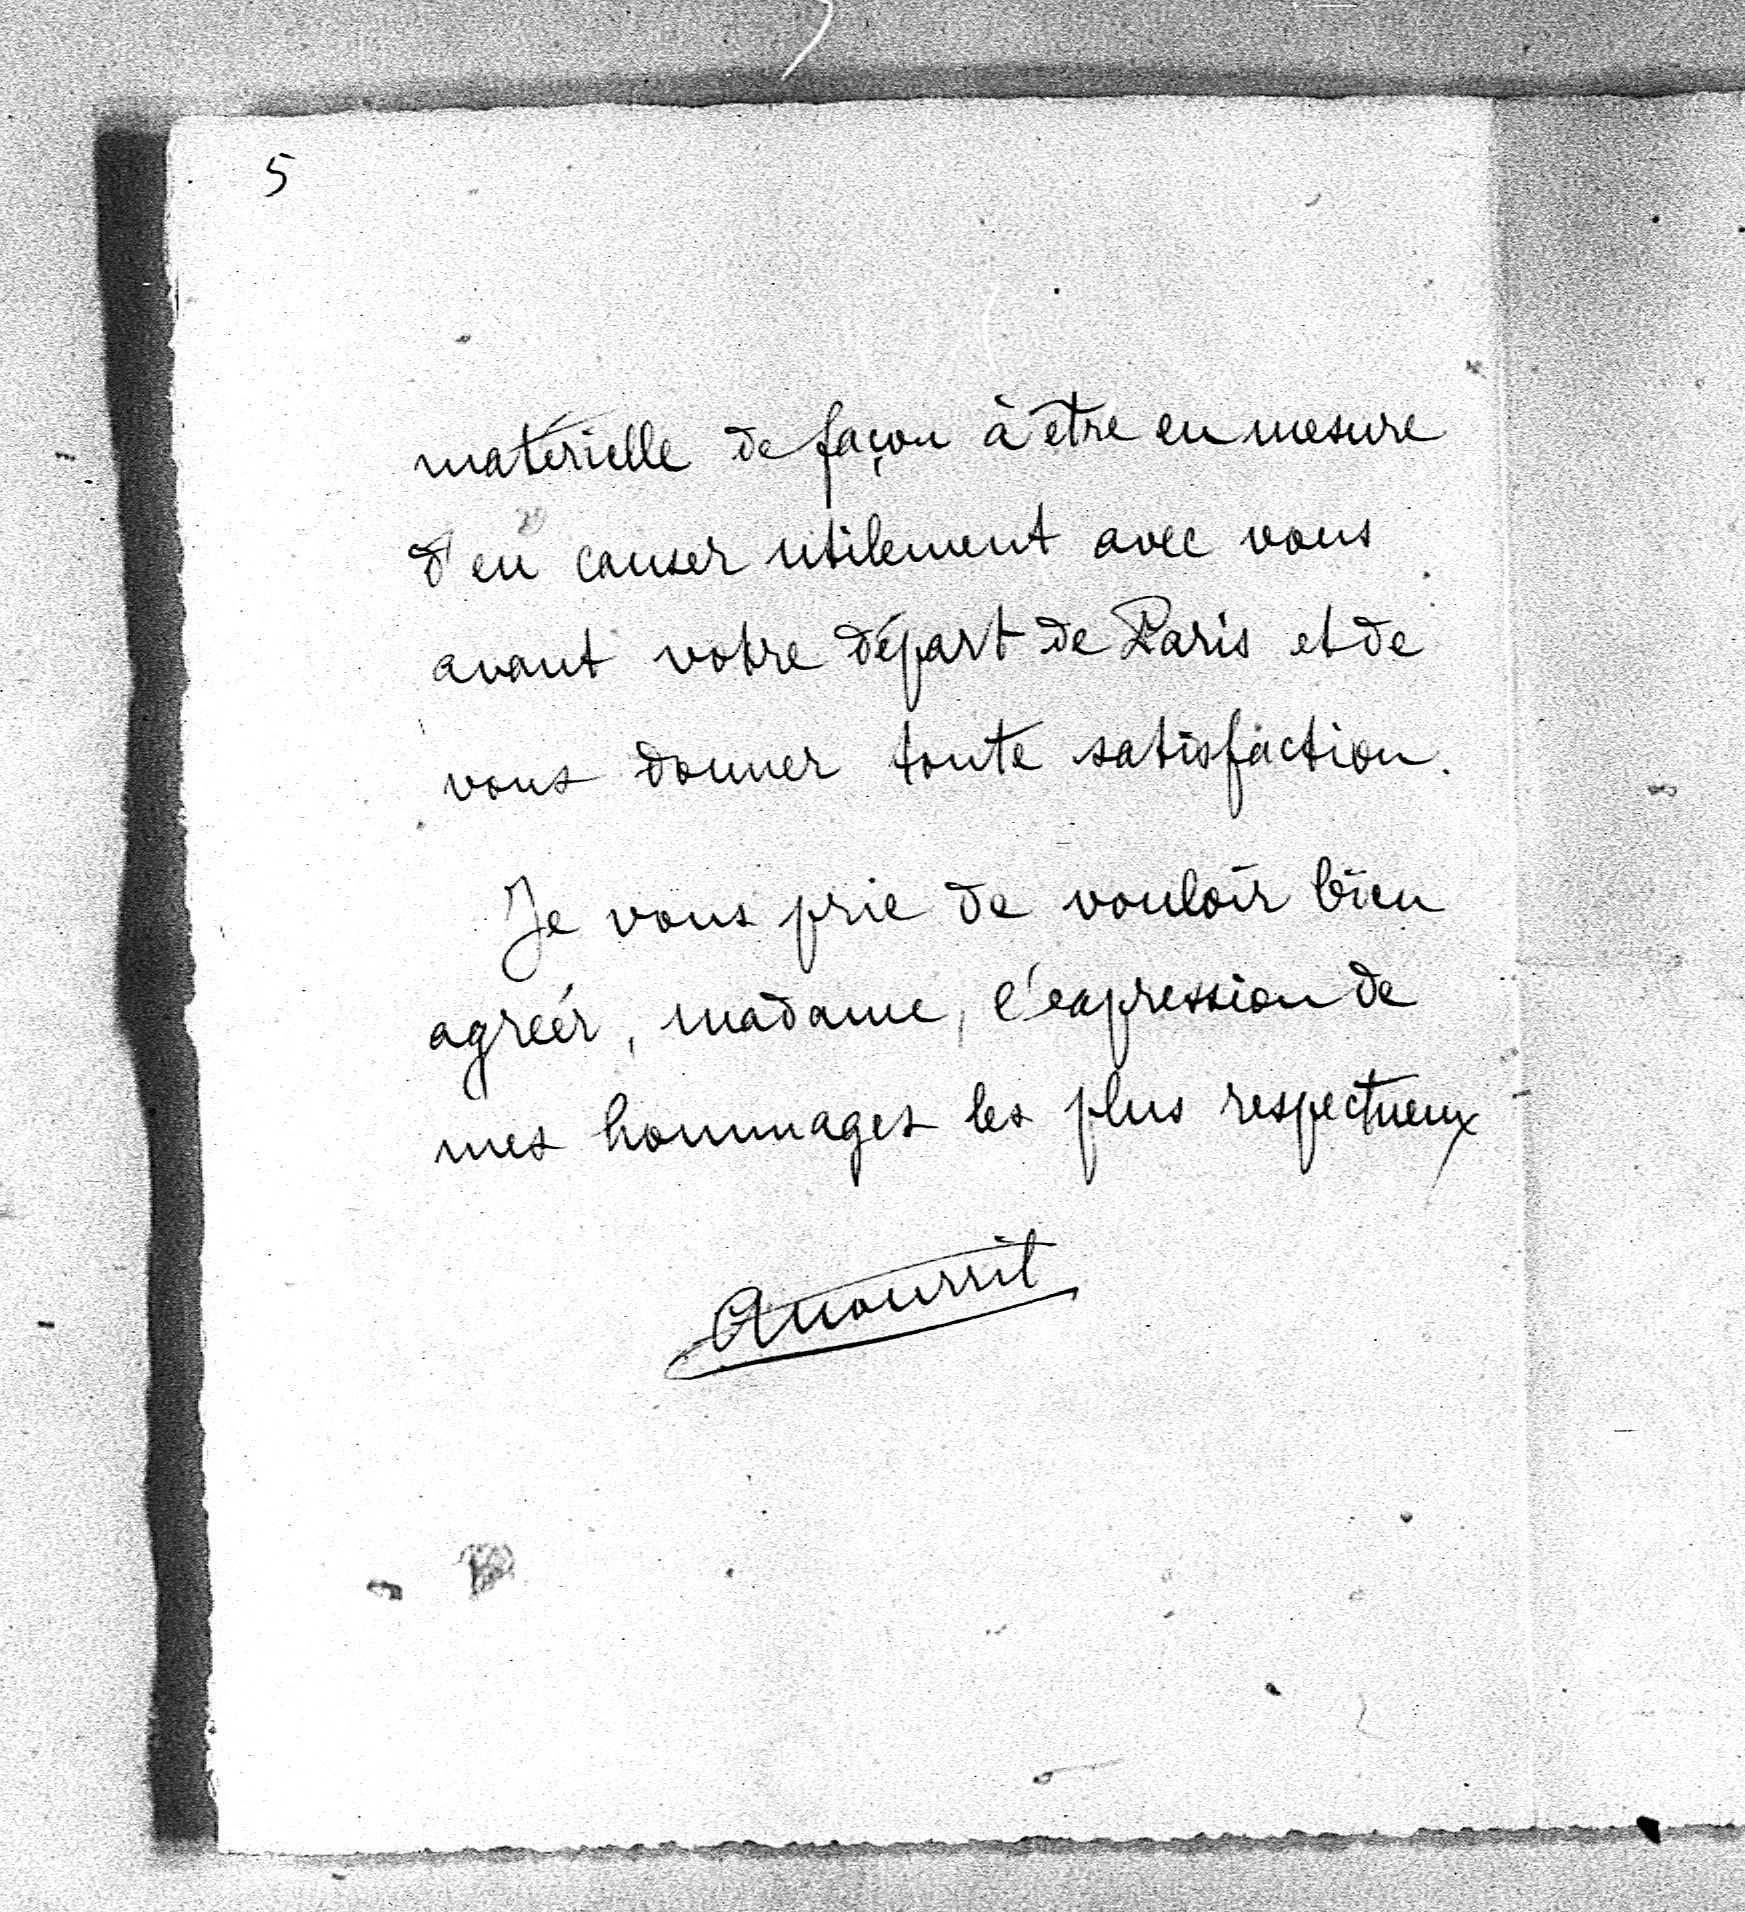 5
matérielle de façon à être en mesure
d'en causer utilement avec vous
avant votre départ de Paris et de
vous donner toute satisfaction.
Je vous prie de vouloir bien
agréer, madame, l'expression de
mes hommages les plus respectueux